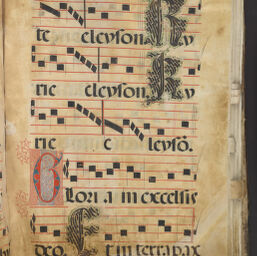 te eleyson. Ky
rie eleyson. Ky
rie e leysō.
Glori a in excelsis
deo. Et in terra pax